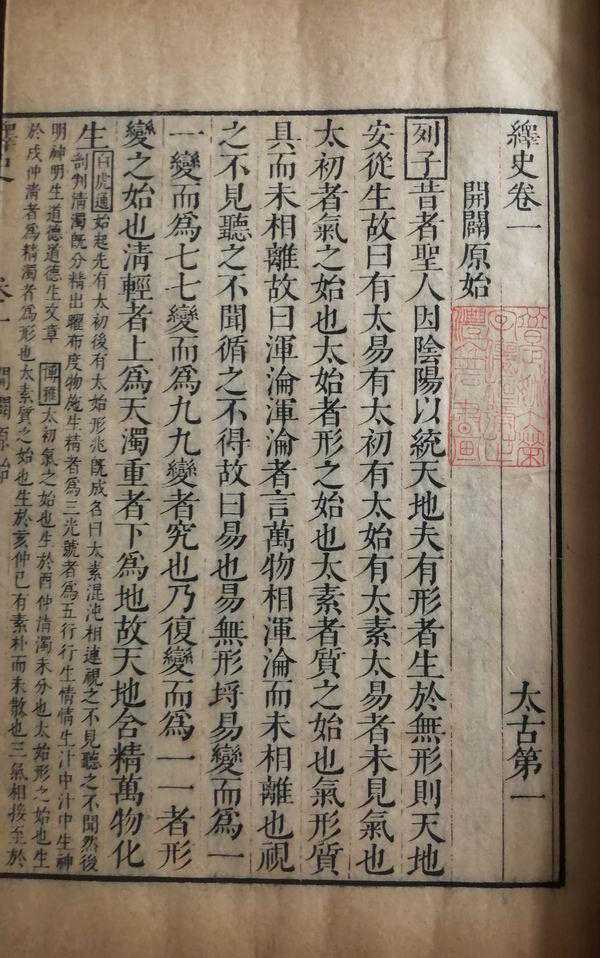 繹史卷一 太古第一
開闢原始
列子昔者聖人因陰陽以統天地夫有形者生於無形則天地
安從生故曰有太易有太初有太始有太素太易者未見氣也
太初者氣之始也太始者形之始也太素者質之始也氣形質
具而未相離故曰渾淪渾淪者言萬物相渾淪而未相離也視
之不見聽之不聞循之不得故曰易也易無形埒易變而爲一
一變而爲七七變而爲九九變者究也乃復變而爲一一者形
變之始也清輕者上爲天濁重者下爲地故天地含精萬物化
生
白虎通始起先有太初後有太始形兆既成名曰太素混沌相連視之不見聽之不聞然後
剖判清濁既分精出曜布度物施生精者爲三光號者爲五行行生情情生汁中汁中生神
明神明生道德道德生文章 博雅太初氣之始也生於酉仲清濁未分也太始形之始也生
於戌仲清者爲精濁者爲形也太素質之始也生於亥仲已有素朴而未散也三氣相接至於